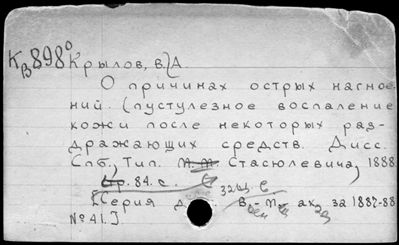 Кв898⁰
Крылов, В.А.
О причинах острых нагное-
ний. (пустулезное воспаление
кожи после некоторых раз-
дражающих средств. Дисс.
Спб., Тип. Стасюлевича, 1888
84. с.
защ. в
[Серия д В - м ах за 1887-88
№41.]